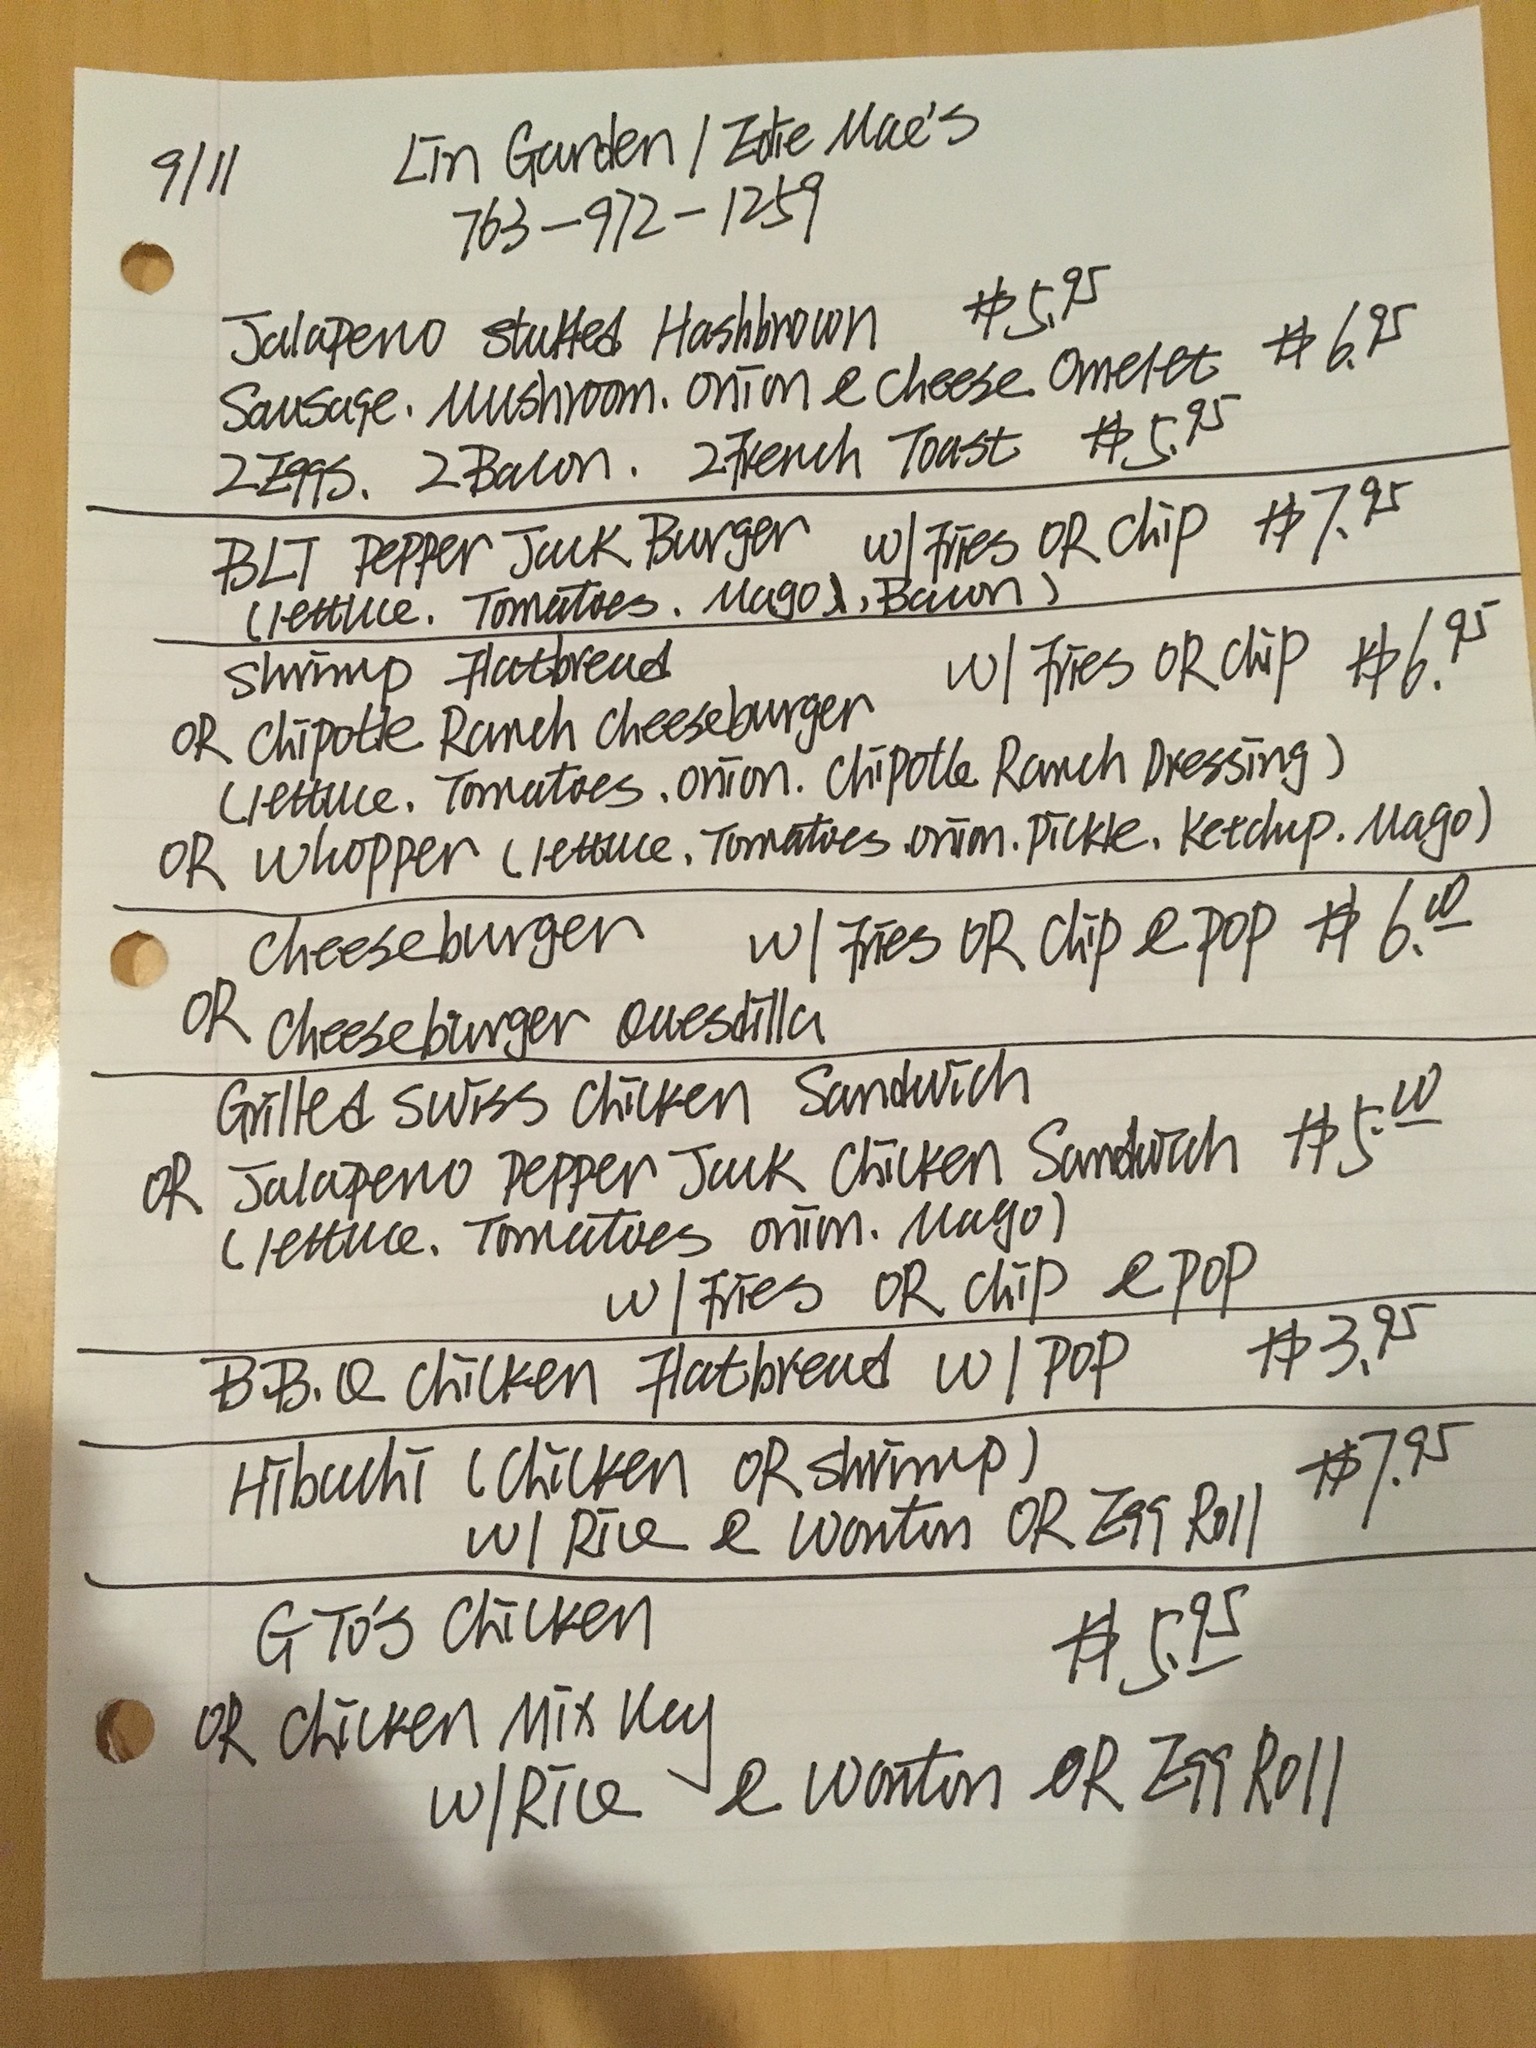 9/11 Lin Garden / Edie Mae's
763-972-1259
Jalapeno stuffed Hashbrown $5.95
Sausage. Mushroom. onion & cheese Omelet $6.95
2 Eggs. 2 Bacon. 2 French Toast $5.95
BLT Pepper Jack Burger w/ Fries OR Chip $7.95
(lettuce. Tomatoes. Mayo, Bacon)
Shrimp Flatbread w/ Fries OR Chip $6.95
OR Chipotle Ranch Cheeseburger
(lettuce. Tomatoes. onion. Chipotle Ranch Dressing)
OR Whopper (lettuce. Tomatoes. onion. Pickle. Ketchup. Mayo)
Cheeseburger w/ Fries OR Chip & POP $6.00
OR Cheeseburger Quesdilla
Grilled Swiss Chicken Sandwich
OR Jalapeno Pepper Jack Chicken Sandwich $5.00
(lettuce. Tomatoes onion. Mayo)
w/ Fries OR Chip & POP
B.B.Q Chicken Flatbread w/ POP $3.95
Hibachi (Chicken OR Shrimp) $7.95
w/ Rice & Wonton OR Egg Roll
G To's Chicken $5.95
OR Chicken Mix Veg
w/ Rice & Wonton OR Egg Roll